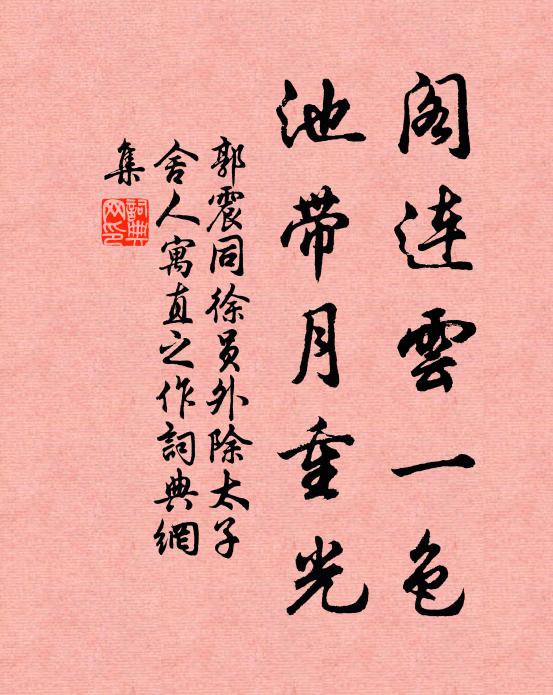 阁连雲一色
池带月重光
郭震同徐员外除太子
舍人寓直之作詞典網
集
詞典
网印